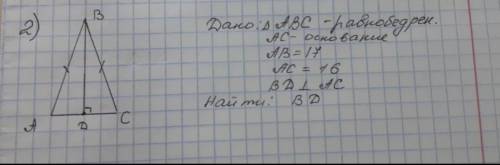 2)
B
A
D
C
Дано: Δ ABC - равнобедрен.
AC - основание
AB = 17
AC = 16
BD ⊥ AC
Найти: BD